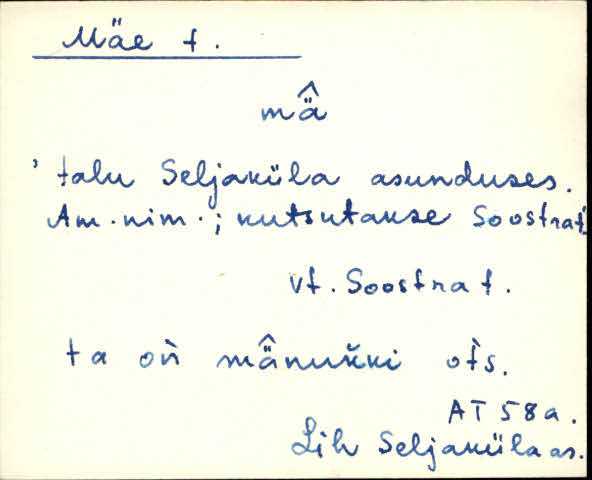 Mäe t.
mä̂
' talu Seljaküla asunduses.
Am. nim.; kutsutakse Soostrat.
vt. Soostrat.
ta oǹ mä̂nukki ot̀s.
AT 58a.
Lih Seljaküla as.